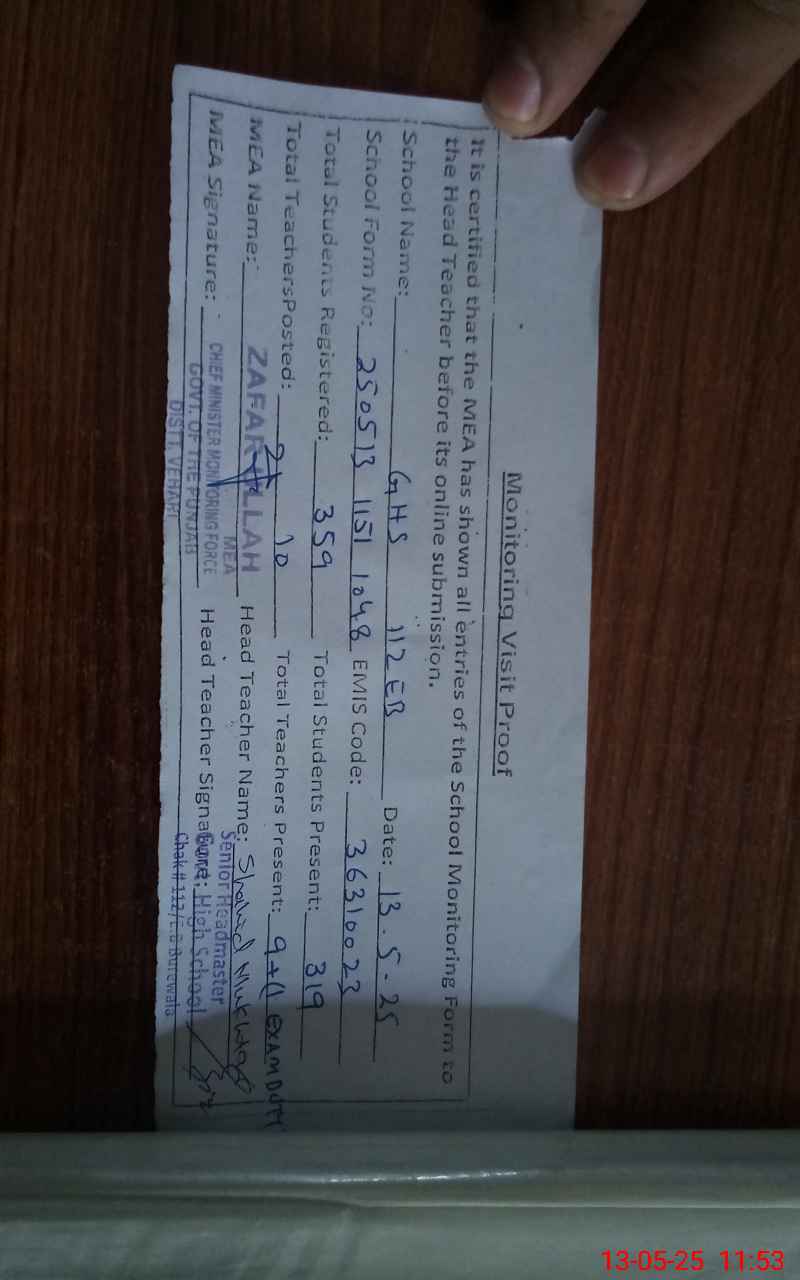 Monitoring Visit Proof
It is certified that the MEA has shown all entries of the School Monitoring Form to
the Head Teacher before its online submission.
School Name: GHS 112 EB Date: 13.5-25
School Form No: 250513 1151 1048 EMIS Code: 36310023
Total Students Registered: 359 Total Students Present: 319
Total TeachersPosted: 10 Total Teachers Present: 9+(1 EXAM DUTY)
MEA Name: ZAFAR ULLAH Head Teacher Name: Shahid
MEA
MEA Signature: Head Teacher Signature:
CHIEF MINISTER MONITORING FORCE
GOVT. OF THE PUNJAB
DISTT. VEHARI
Senior Headmaster
Govt. High School
Chak # 112/E.B Burewala
13-05-25 11:53